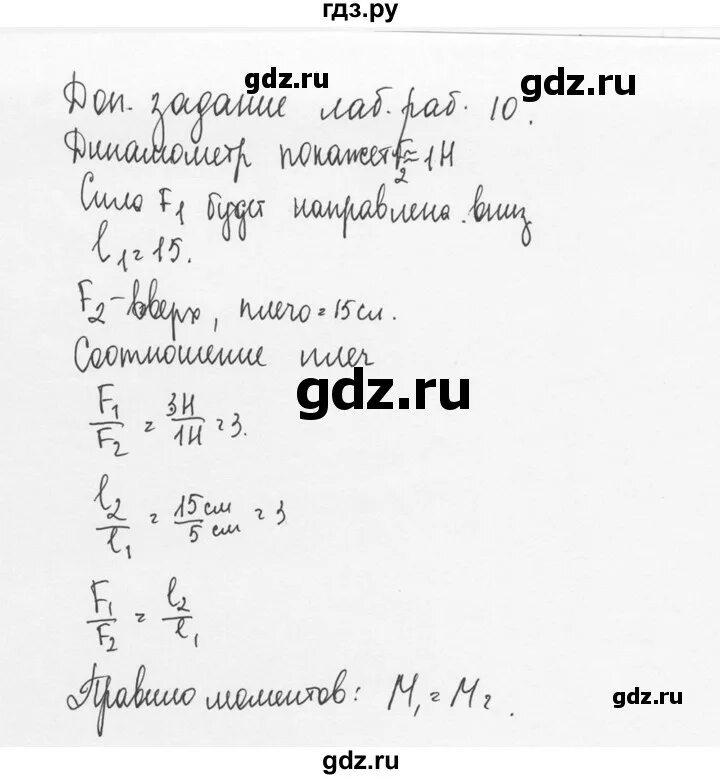 гдз.ру
gdz.ru
gdz.ru
Доп. задание лаб. раб. 10.
Динамометр покажет F₂ ≈ 1Н
Сила F₁ будет направлена вниз
l₁ = 15.
F₂ - вверх, плечо = 15 см.
Соотношение плеч
gdz.ru
F₁/F₂ = 3Н/1Н = 3.
l₂/l₁ = 15 см/5 см = 3
F₁/F₂ = l₂/l₁
Правило моментов: M₁ = M₂.
gdz.ru
gdz.ru